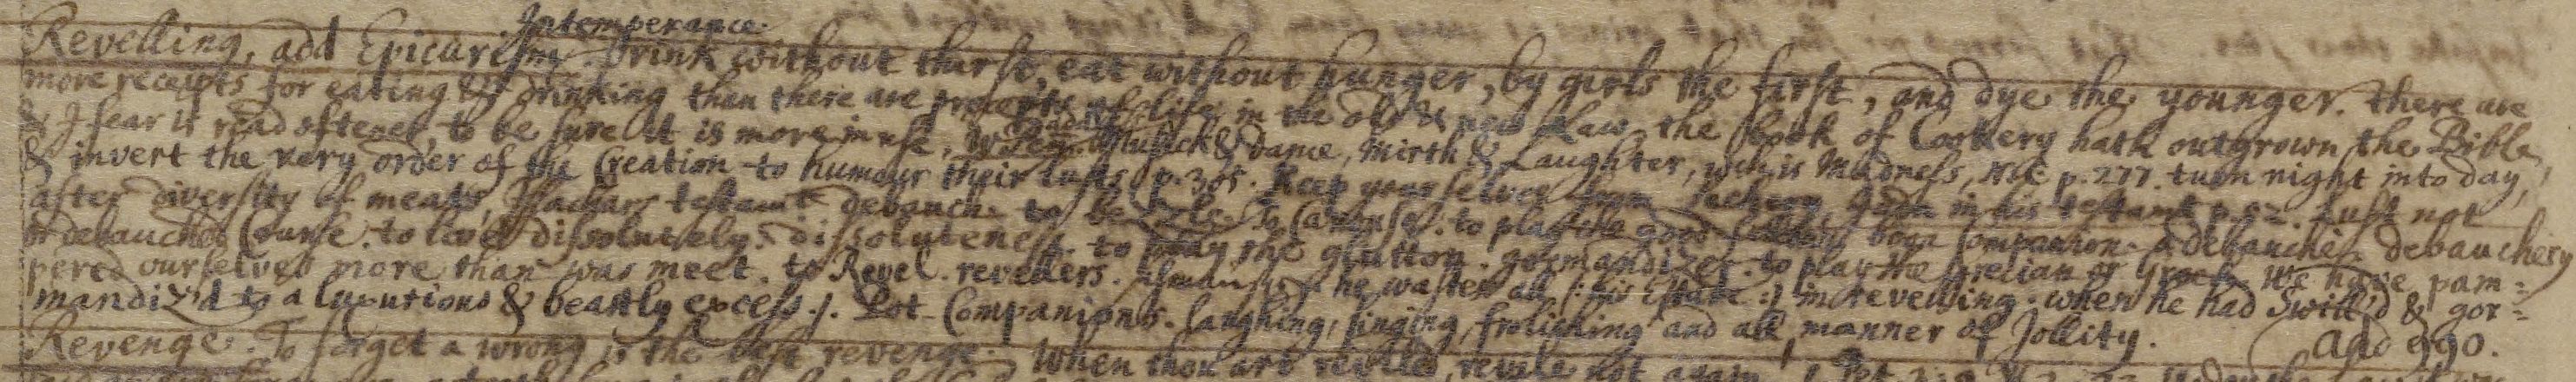 Intemperance.
Revelling, add Epicurism. Drink without thirst, eat without hunger, by girls the first, and dye the younger. There are
more receipts for eating & drinking than there are precepts of life in the old & new Law, the Book of Cookery hath outgrown the Bible,
& I fear is read oftener, to be sure it is more in use, Musick & dance, mirth & Laughter, wch is Madness, p. 277. turn night into day,
& invert the very order of the Creation to humour their lusts p. 305. Keep yourselves from lechery, in his testamt p. 92. Lust not
after diversity of meats, Isachars testamt debauch. to be To Carouse. to play the good boon Companion. a debauchée debauchery
or debauched Course. to live dissolutely. dissoluteness. to play the glutton. gormandizer. to play the Grecian or Greek. We have pam=
pered ourselves more than was meet. to Revel. revellers. he wastes all (: his Estate :) in revelling. when he had Swill'd & gor=
mandiz'd to a luxurious & beastly excess./. Pot-Companions. laughing, singing, frolicking and all manner of Jollity. Add 990.
Revenge. To forget a wrong is the best revenge. When thou art reviled, revile not again,